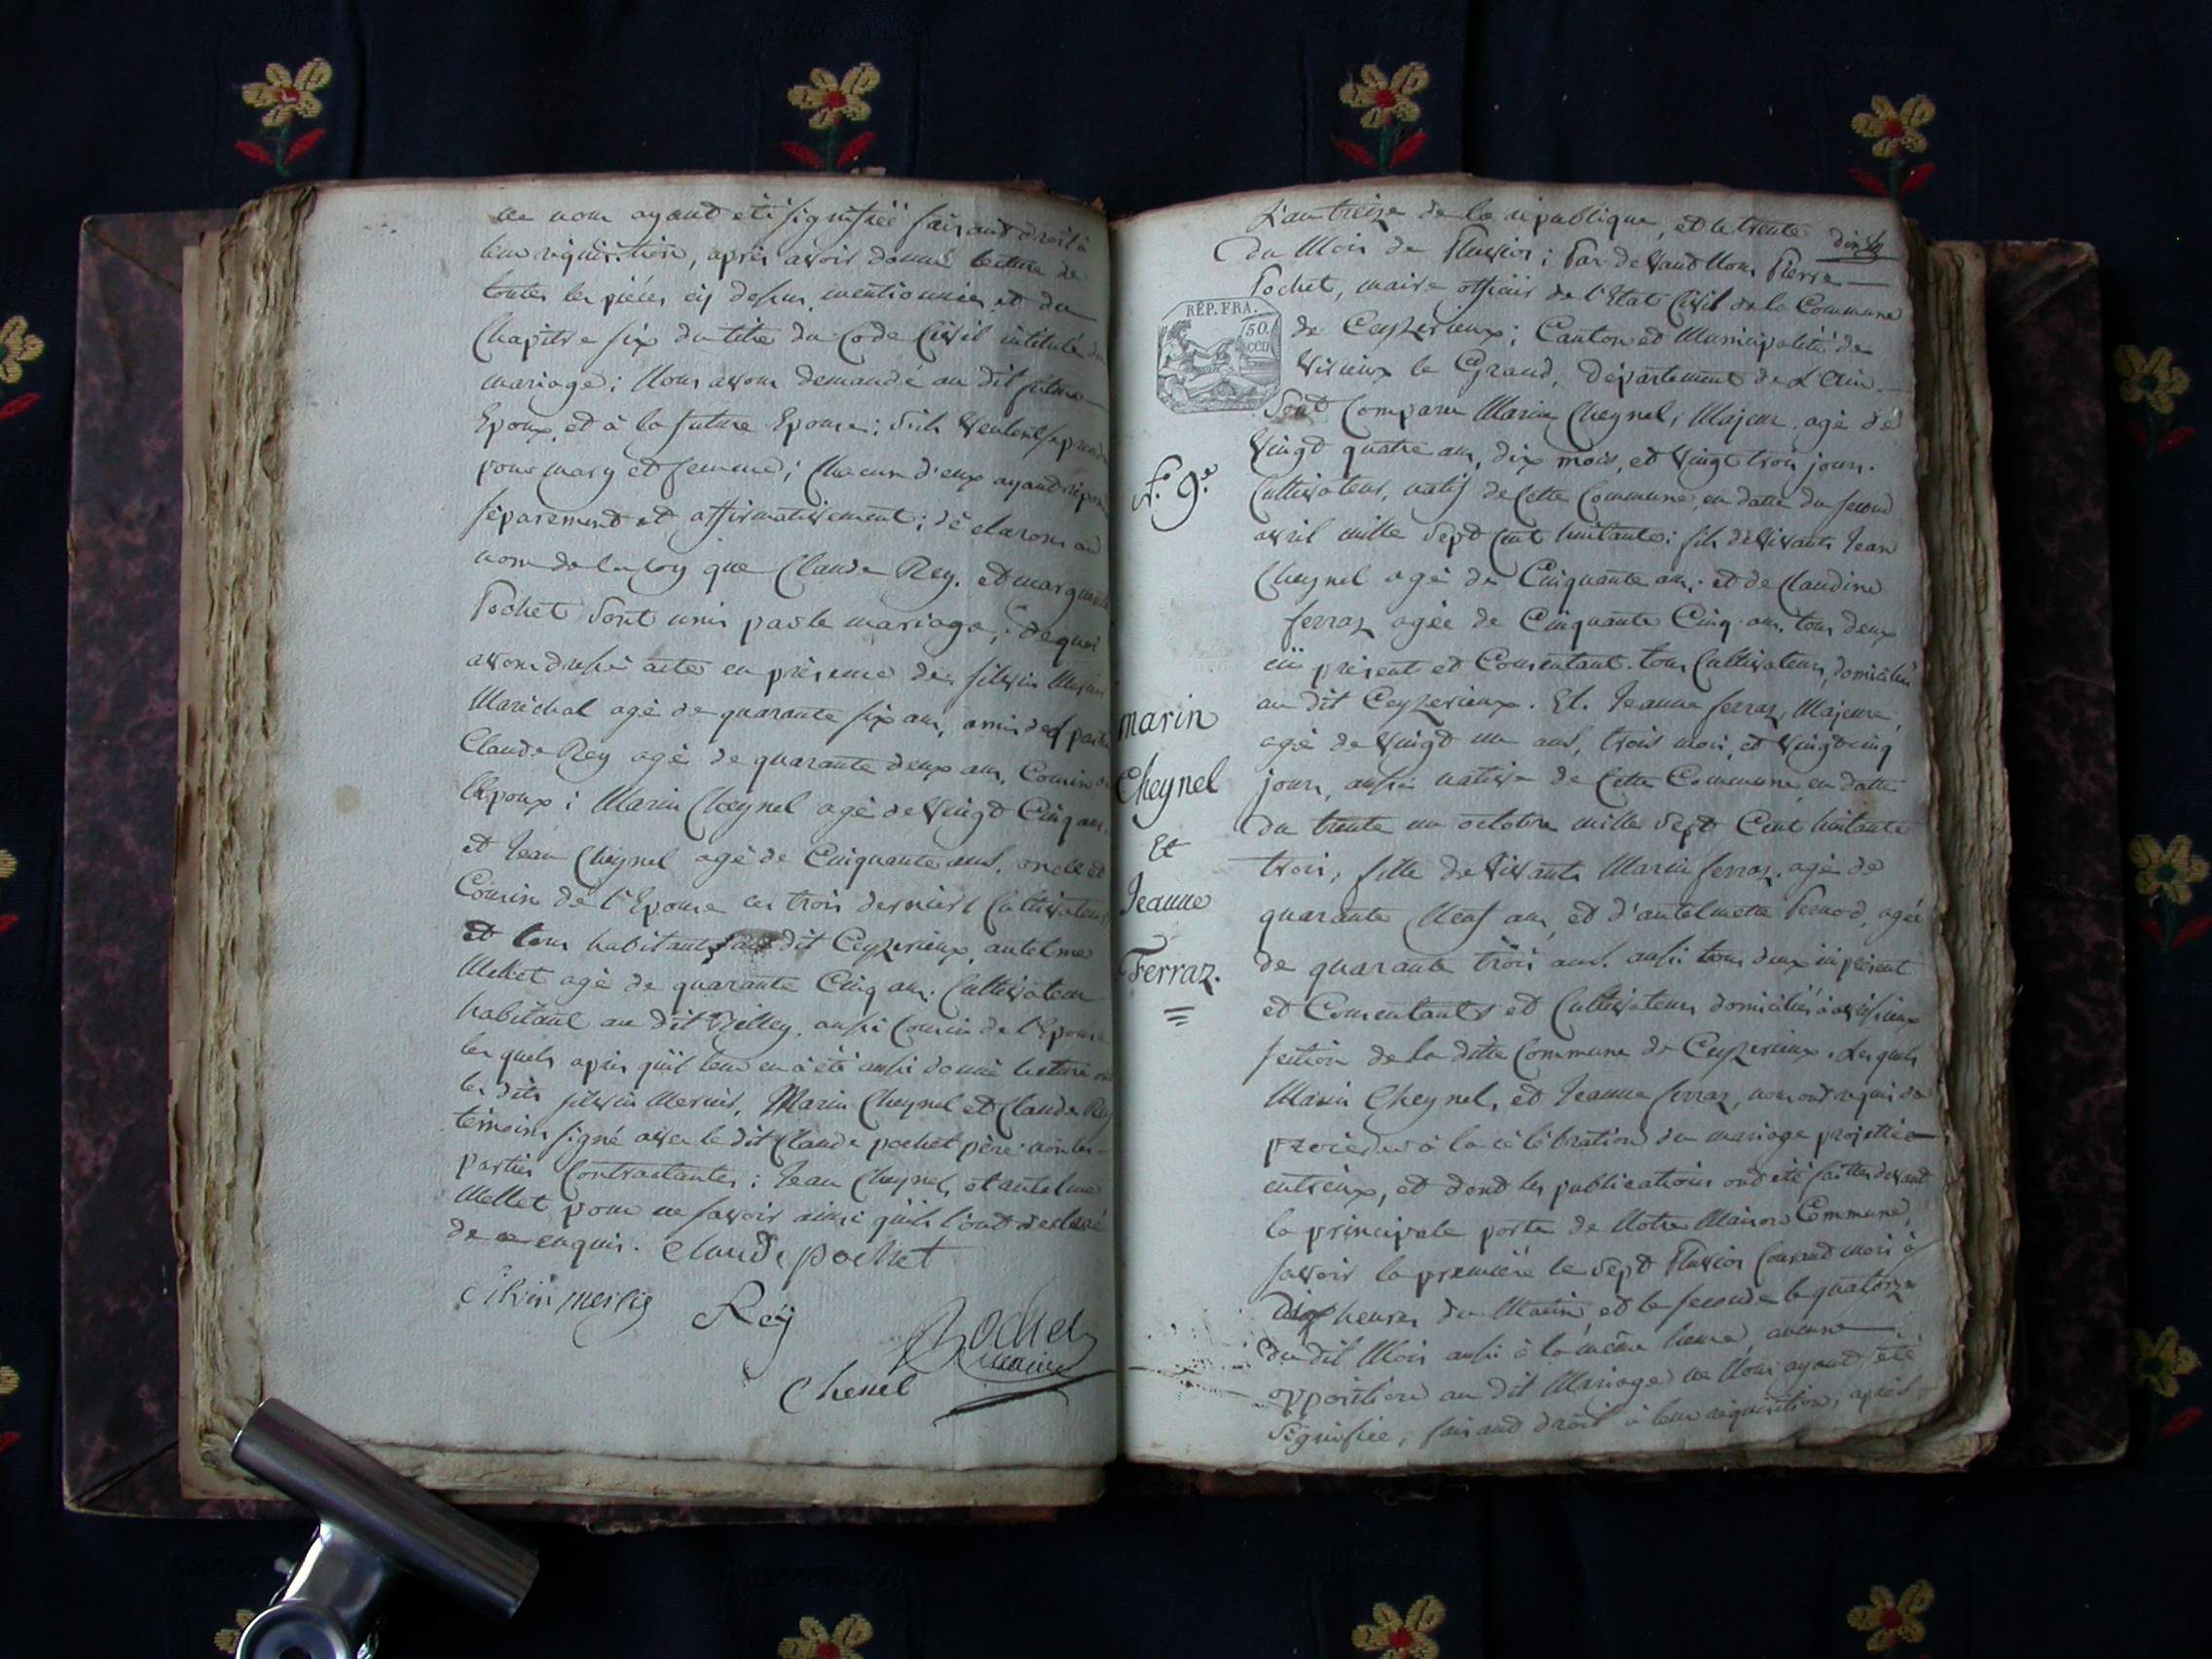 ne nous ayant été signifiée faisant droit à
leur requisition, après avoir donné lecture de
toutes les pièces cy dessus mentionnées et du
Chapitre six du titre du Code Civil intitulé du
mariage; Nous avons demandé au dit futur
Epoux, et à la future Epouse; s'ils veulent se prendre
pour mary et femme; Chacun d'eux ayant répondu
séparement et affirmativement; déclarons au
nom de la loy que Claude Rey. et marguerite
Pochet sont unis par le mariage; de quoi
avons dressé acte en présence de Silvin
Maréchal agé de quarante six ans, amis des parties
Claude Rey agé de quarante deux ans, Cousin de
l'Epoux; Marin Cheynel agé de Vingt Cinq ans.
et Jean Cheynel agé de Cinquante ans. oncle et
Cousin de l'Epouse ces trois derniers Cultivateurs
et tous habitants au dit Ceyzerieux, antelme
Mellet agé de quarante Cinq ans. Cultivateur
habitant au dit aussi Cousin de l'Epouse
les quels après qu'il leur en à été aussi donné lecture ont
les dits silvin Marin Cheynel et Claude Rey
témoins signé avec le dit Claude pochet père non les
parties Contractantes; Jean Cheynel et antelme
Mellet pour ne savoir ainsi qu'ils l'ont declaré
de ce enquis. Claude pochet
Rey
Pochet
maire
Chenel
L'an treize de la republique, et le trente
du Mois de Pluviose; Par devant Nous Pierre
Pochet, maire officier de l'Etat Civil de la Commune
RÉP. FRA.
50.
cen
de Ceyzerieux; Canton et Municipalité de
Virieux le Grand, Département de L'Ain.
Sont Comparu Marin Cheynel, Majeur. agé de
Vingt quatre ans, dix mois, et Vingt trois jours.
N.º 9.e
Cultivateur, natif de Cette Commune, en datte du second
avril mille sept cent huitante: fils de Vivants Jean
Cheynel agé de Cinquante ans; et de Claudine
ferraz agée de Cinquante Cinq ans. tous deux
présent et Consentant. tous Cultivateurs, domiciliés
marin
Cheynel
Et
Jeanne
Ferraz.
au dit Ceyzerieux. Et. Jeanne ferraz, Majeure,
agé de Vingt un ans, trois mois, et Vingt cinq
jours, aussi native de Cette Commune en datte
du trente un octobre mille sept Cent huitante
trois, fille de Vivants Marin ferraz. agé de
quarante Neuf ans, et d'antelmette agée
de quarante trois ans. aussi tous deux présent
et Consentants et Cultivateurs domiciliés à
section de la ditte Commune de Ceyzerieux. Lesquels
Marin Cheynel, et Jeanne ferraz, nous ont requis de
procéder à la célébration du mariage projetté
entr'eux, et dont les publications ont été faittes devant
la principale porte de Notre Maison Commune,
savoir la première le sept Pluviose Courant mois à
Dix heures du Matin, et la seconde le quatorze
du dit Mois aussi à la même heure, aucune
opposition au dit Mariage ne Nous ayant été
signifiée, faisant droit à leur requisition, après